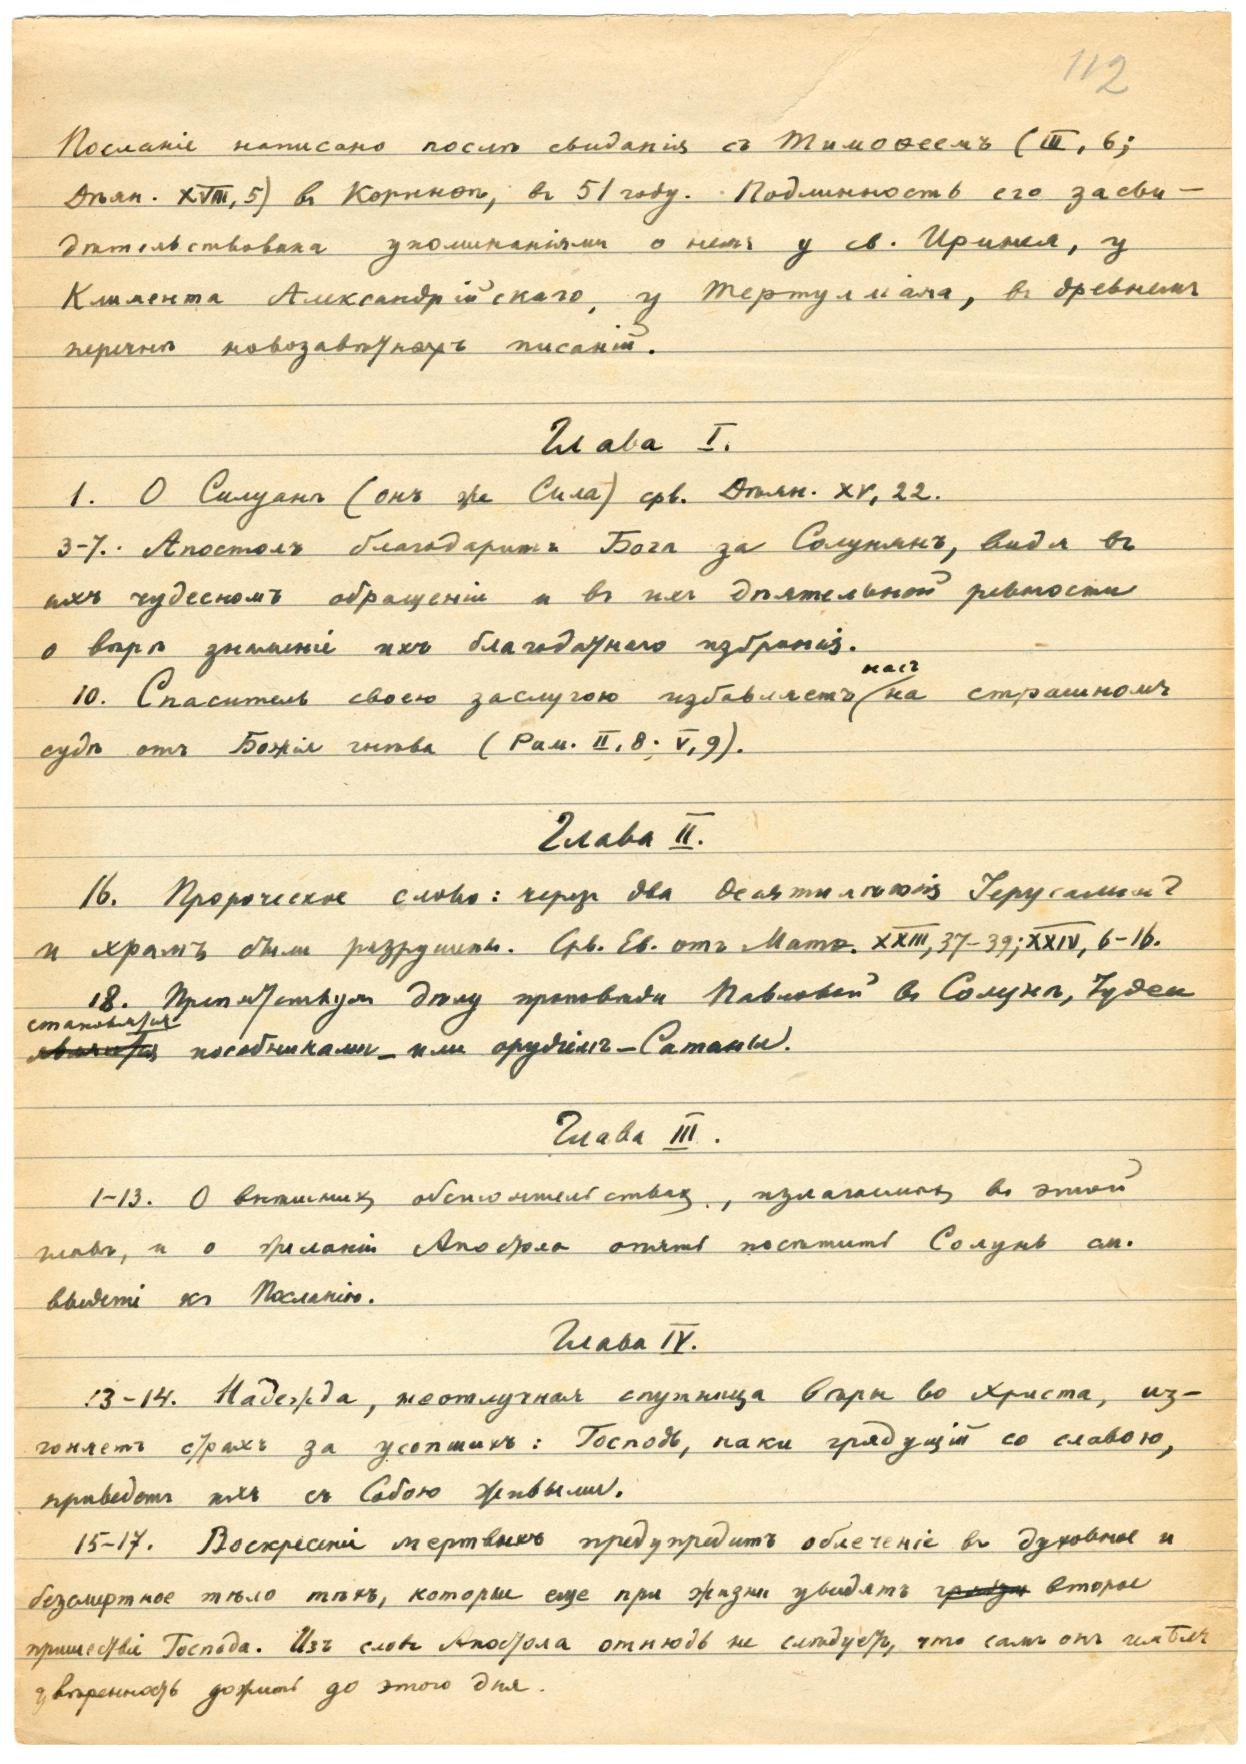 112
Посланіе написано послѣ свиданія съ Тимоѳеемъ (III, 6;
Дѣян. XVIII, 5) въ Коринѳѣ, въ 51 году. Подлинность его засви-
дѣтельствована упоминаніями о немъ у св. Иринея, у
Климента Александрійскаго, у Тертулліана, въ древнемъ
перечнѣ новозавѣтныхъ писаній.
Глава I.
1. О Силуанѣ (онъ же Сила) срв. Дѣян. XV, 22.
3-7. Апостолъ благодаритъ Бога за Солунянъ, видя въ
ихъ чудесномъ обращеніи и въ ихъ дѣятельной ревности
о вѣрѣ знаменіе ихъ благодатнаго избранія.
10. Спаситель своею заслугою избавляетъ насъ на страшномъ
судѣ отъ Божія гнѣва (Рим. II, 8; V, 9).
Глава II.
16. Пророческое слово: черезъ два десятилѣтія Іерусалимъ
и храмъ были разрушены. Срв. Ев. отъ Матѳ. XXIII, 37-39; XXIV, 6-16.
18. Препятствуя дѣлу проповѣди Павловой въ Солунѣ, Іудеи
становятся
являются пособниками – или орудіемъ – Сатаны.
Глава III.
1-13. О внѣшнихъ обстоятельствахъ, излагаемыхъ въ этой
главѣ, и о желаніи Апостола опять посѣтить Солунь см.
введеніе къ Посланію.
Глава IV.
13-14. Надежда, неотлучная спутница вѣры во Христа, из-
гоняетъ страхъ за усопшихъ: Господь, паки грядущій со славою,
приведетъ ихъ съ Собою живыми.
15-17. Воскресеніе мертвыхъ предупредитъ облеченіе въ духовное и
безсмертное тѣло тѣхъ, которые еще при жизни увидятъ второе
пришествіе Господа. Изъ словъ Апостола отнюдь не слѣдуетъ, что самъ онъ имѣлъ
увѣренность дожить до этого дня.